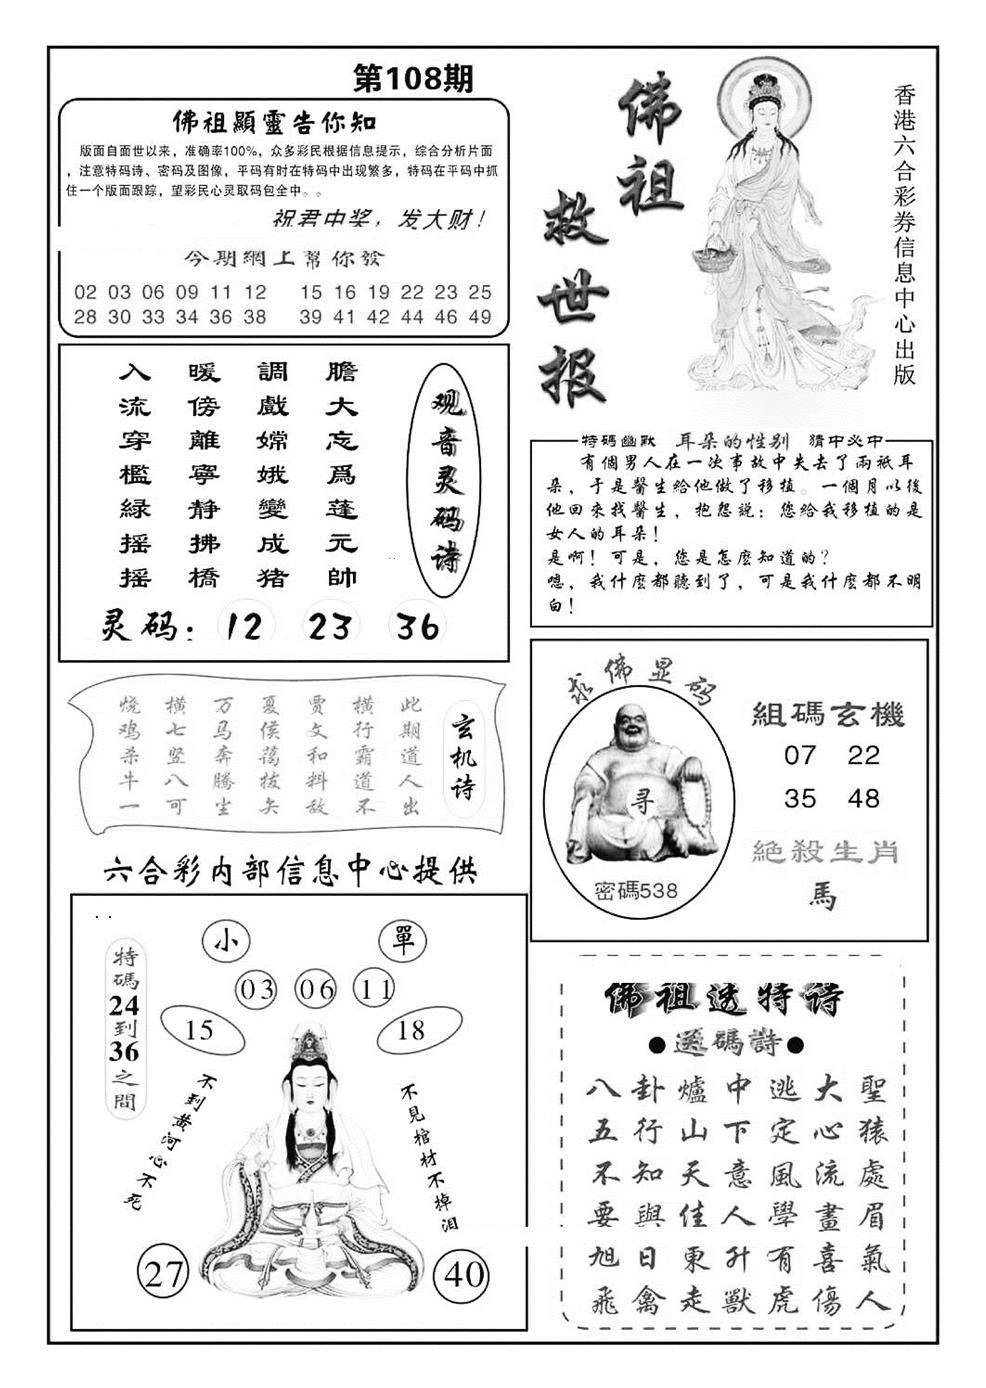 第108期
佛祖顯靈告你知
版面自面世以来，准确率100%，众多彩民根据信息提示，综合分析片面
，注意特码诗、密码及图像，平码有时在特码中出现繁多，特码在平码中抓
住一个版面跟踪，望彩民心灵取码包全中。。
祝君中奖，发大财！
今期網上幫你發
02 03 06 09 11 12 15 16 19 22 23 25
28 30 33 34 36 38 39 41 42 44 46 49
佛祖
救世报
香港六合彩券信息中心出版
观音灵码诗
膽大忘爲蓬元帥
調戲嫦娥變成猪
暖傍離寧靜拂橋
入流穿檻緑摇摇
灵码：12 23 36
特碼幽默 耳朵的性别 猜中必中
有個男人在一次事故中失去了兩衹耳
朵，于是醫生給他做了移植。一個月以後
他回來找醫生，抱怨説：您給我移植的是
女人的耳朵！
是啊！可是，您是怎麽知道的？
嗯，我什麽都聽到了，可是我什麽都不明
白！
玄机诗
此期道人出
横行霸道不
贾文和料敌
夏侯蔼拔矢
万马奔騰坐
横七竖八可
烧鸡杀牛一
求佛显码
寻
密碼538
組碼玄機
07 22
35 48
絶殺生肖
馬
六合彩内部信息中心提供
小
單
03 06 11
15
18
特碼24到36之間
不到黄河心不死
不見棺材不掉泪
27
40
佛祖透特诗
●透碼詩●
八卦爐中逃大聖
五行山下定心猿
不知天意風流處
要與佳人學畫眉
旭日東升有喜氣
飛禽走獸虎傷人